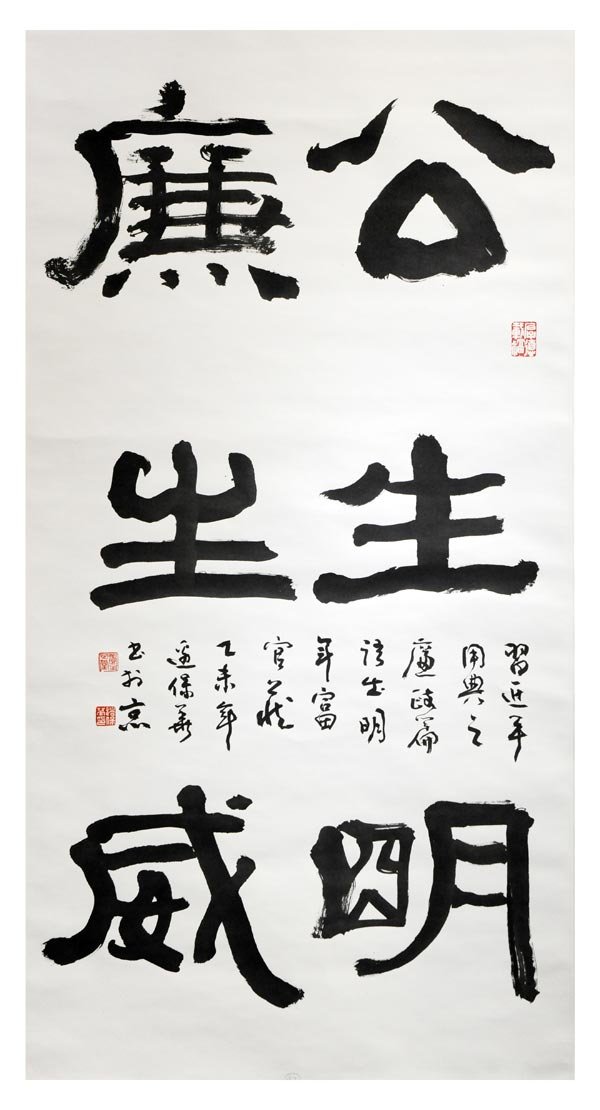 公生明
廉生威
習近平
用典之
廉政篇
语出明
年富
官箴
乙未年
保華
书於京